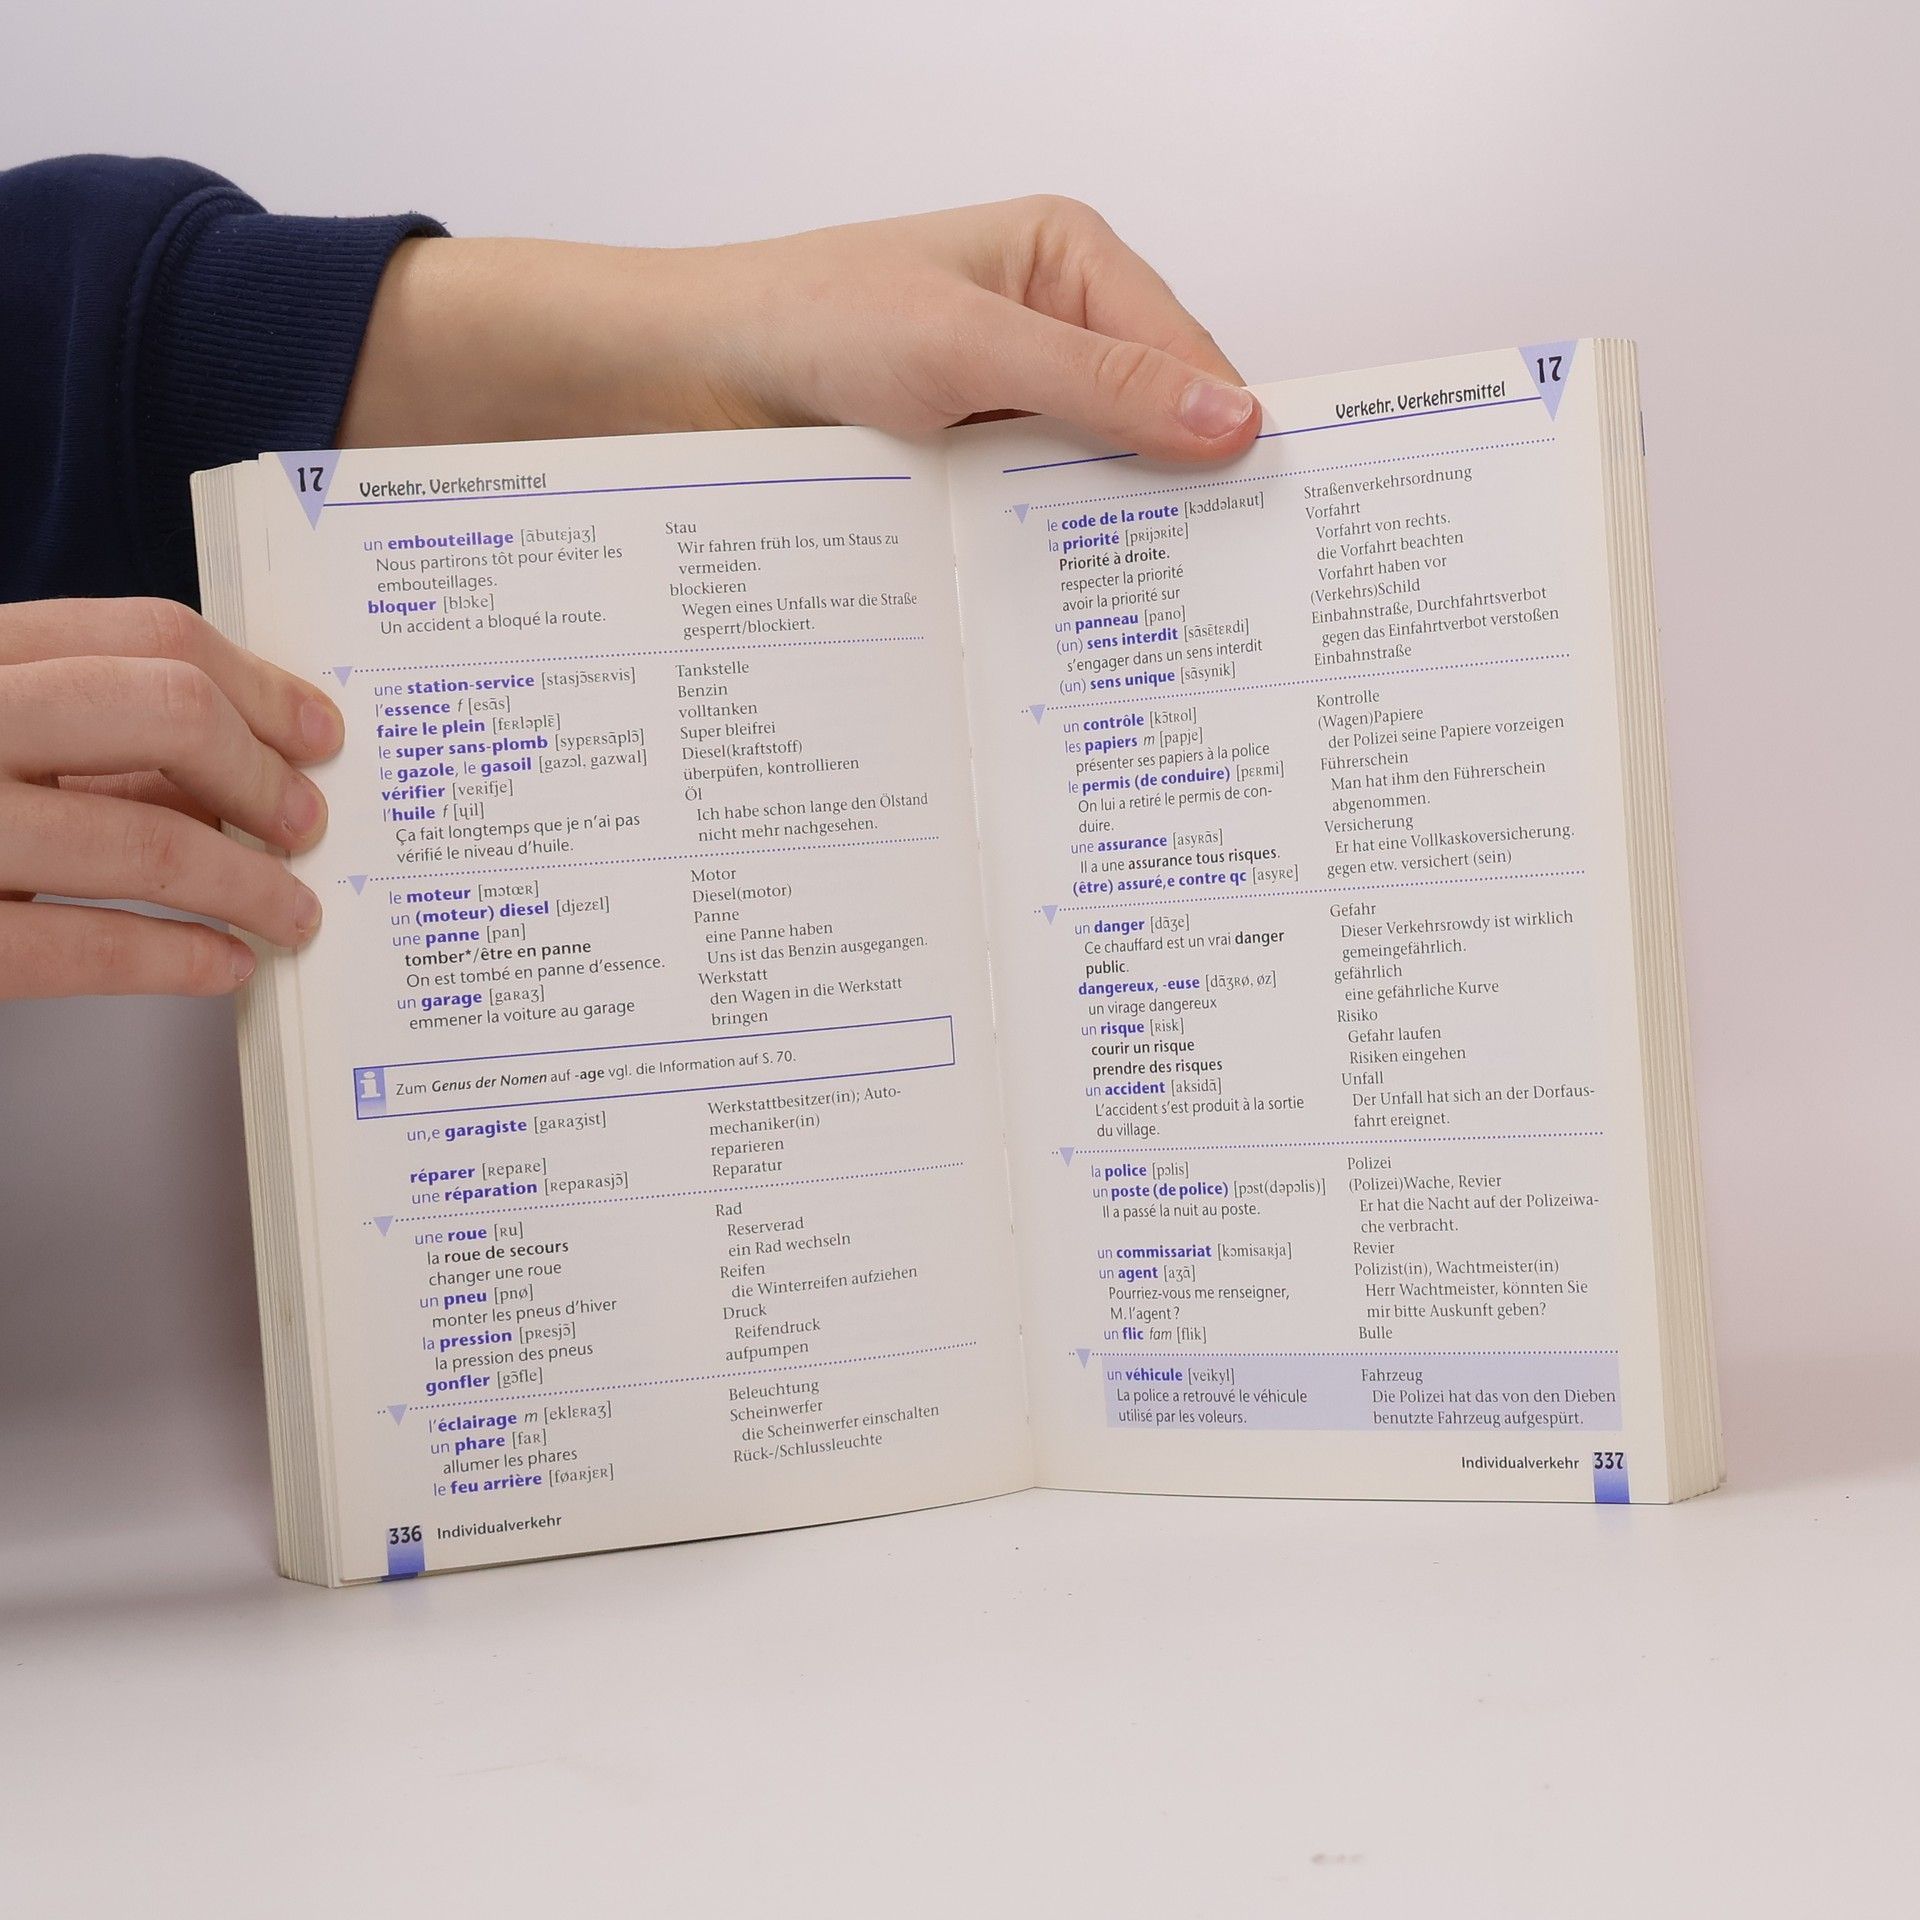 17 Verkehr, Verkehrsmittel
un embouteillage [ãbutɛjaʒ] Stau
Nous partirons tôt pour éviter les Wir fahren früh los, um Staus zu
embouteillages. vermeiden.
bloquer [blɔke] blockieren
Un accident a bloqué la route. Wegen eines Unfalls war die Straße
gesperrt/blockiert.
une station-service [stasjɔ̃sɛʀvis] Tankstelle
l'essence f [esãs] Benzin
faire le plein [fɛʀləplɛ̃] volltanken
le super sans-plomb [sypɛʀsãplɔ̃] Super bleifrei
le gazole, le gasoil [gazɔl, gazwal] Diesel(kraftstoff)
vérifier [veʀifje] überpüfen, kontrollieren
l'huile f [ɥil] Öl
Ça fait longtemps que je n'ai pas Ich habe schon lange den Ölstand
vérifié le niveau d'huile. nicht mehr nachgesehen.
le moteur [mɔtœʀ] Motor
un (moteur) diesel [djezɛl] Diesel(motor)
une panne [pan] Panne
tomber*/être en panne eine Panne haben
On est tombé en panne d'essence. Uns ist das Benzin ausgegangen.
un garage [gaʀaʒ] Werkstatt
emmener la voiture au garage den Wagen in die Werkstatt
bringen
i Zum Genus der Nomen auf -age vgl. die Information auf S. 70.
un,e garagiste [gaʀaʒist] Werkstattbesitzer(in); Auto-
mechaniker(in)
réparer [ʀepaʀe] reparieren
une réparation [ʀepaʀasjɔ̃] Reparatur
une roue [ʀu] Rad
la roue de secours Reserverad
changer une roue ein Rad wechseln
un pneu [pnø] Reifen
monter les pneus d'hiver die Winterreifen aufziehen
la pression [pʀesjɔ̃] Druck
la pression des pneus Reifendruck
gonfler [gɔ̃fle] aufpumpen
l'éclairage m [eklɛʀaʒ] Beleuchtung
un phare [faʀ] Scheinwerfer
allumer les phares die Scheinwerfer einschalten
le feu arrière [føaʀjɛʀ] Rück-/Schlussleuchte
336 Individualverkehr
Verkehr, Verkehrsmittel 17
le code de la route [kɔddəlaʀut] Straßenverkehrsordnung
la priorité [pʀijɔʀite] Vorfahrt
Priorité à droite. Vorfahrt von rechts.
respecter la priorité die Vorfahrt beachten
avoir la priorité sur Vorfahrt haben vor
un panneau [pano] (Verkehrs)Schild
(un) sens interdit [sãsɛ̃tɛʀdi] Einbahnstraße, Durchfahrtsverbot
s'engager dans un sens interdit gegen das Einfahrtverbot verstoßen
(un) sens unique [sãsynik] Einbahnstraße
un contrôle [kɔ̃tʀol] Kontrolle
les papiers m [papje] (Wagen)Papiere
présenter ses papiers à la police der Polizei seine Papiere vorzeigen
le permis (de conduire) [pɛʀmi] Führerschein
On lui a retiré le permis de con- Man hat ihm den Führerschein
duire. abgenommen.
une assurance [asyʀãs] Versicherung
Il a une assurance tous risques. Er hat eine Vollkaskoversicherung.
(être) assuré,e contre qc [asyʀe] gegen etw. versichert (sein)
un danger [dãʒe] Gefahr
Ce chauffard est un vrai danger Dieser Verkehrsrowdy ist wirklich
public. gemeingefährlich.
dangereux, -euse [dãʒʀø, øz] gefährlich
un virage dangereux eine gefährliche Kurve
un risque [ʀisk] Risiko
courir un risque Gefahr laufen
prendre des risques Risiken eingehen
un accident [aksidã] Unfall
L'accident s'est produit à la sortie Der Unfall hat sich an der Dorfaus-
du village. fahrt ereignet.
la police [pɔlis] Polizei
un poste (de police) [pɔst(dəpɔlis)] (Polizei)Wache, Revier
Il a passé la nuit au poste. Er hat die Nacht auf der Polizeiwa-
che verbracht.
un commissariat [kɔmisaʀja] Revier
un agent [aʒã] Polizist(in), Wachtmeister(in)
Pourriez-vous me renseigner, Herr Wachtmeister, könnten Sie
M. l'agent? mir bitte Auskunft geben?
un flic fam [flik] Bulle
un véhicule [veikyl] Fahrzeug
La police a retrouvé le véhicule Die Polizei hat das von den Dieben
utilisé par les voleurs. benutzte Fahrzeug aufgespürt.
Individualverkehr 337